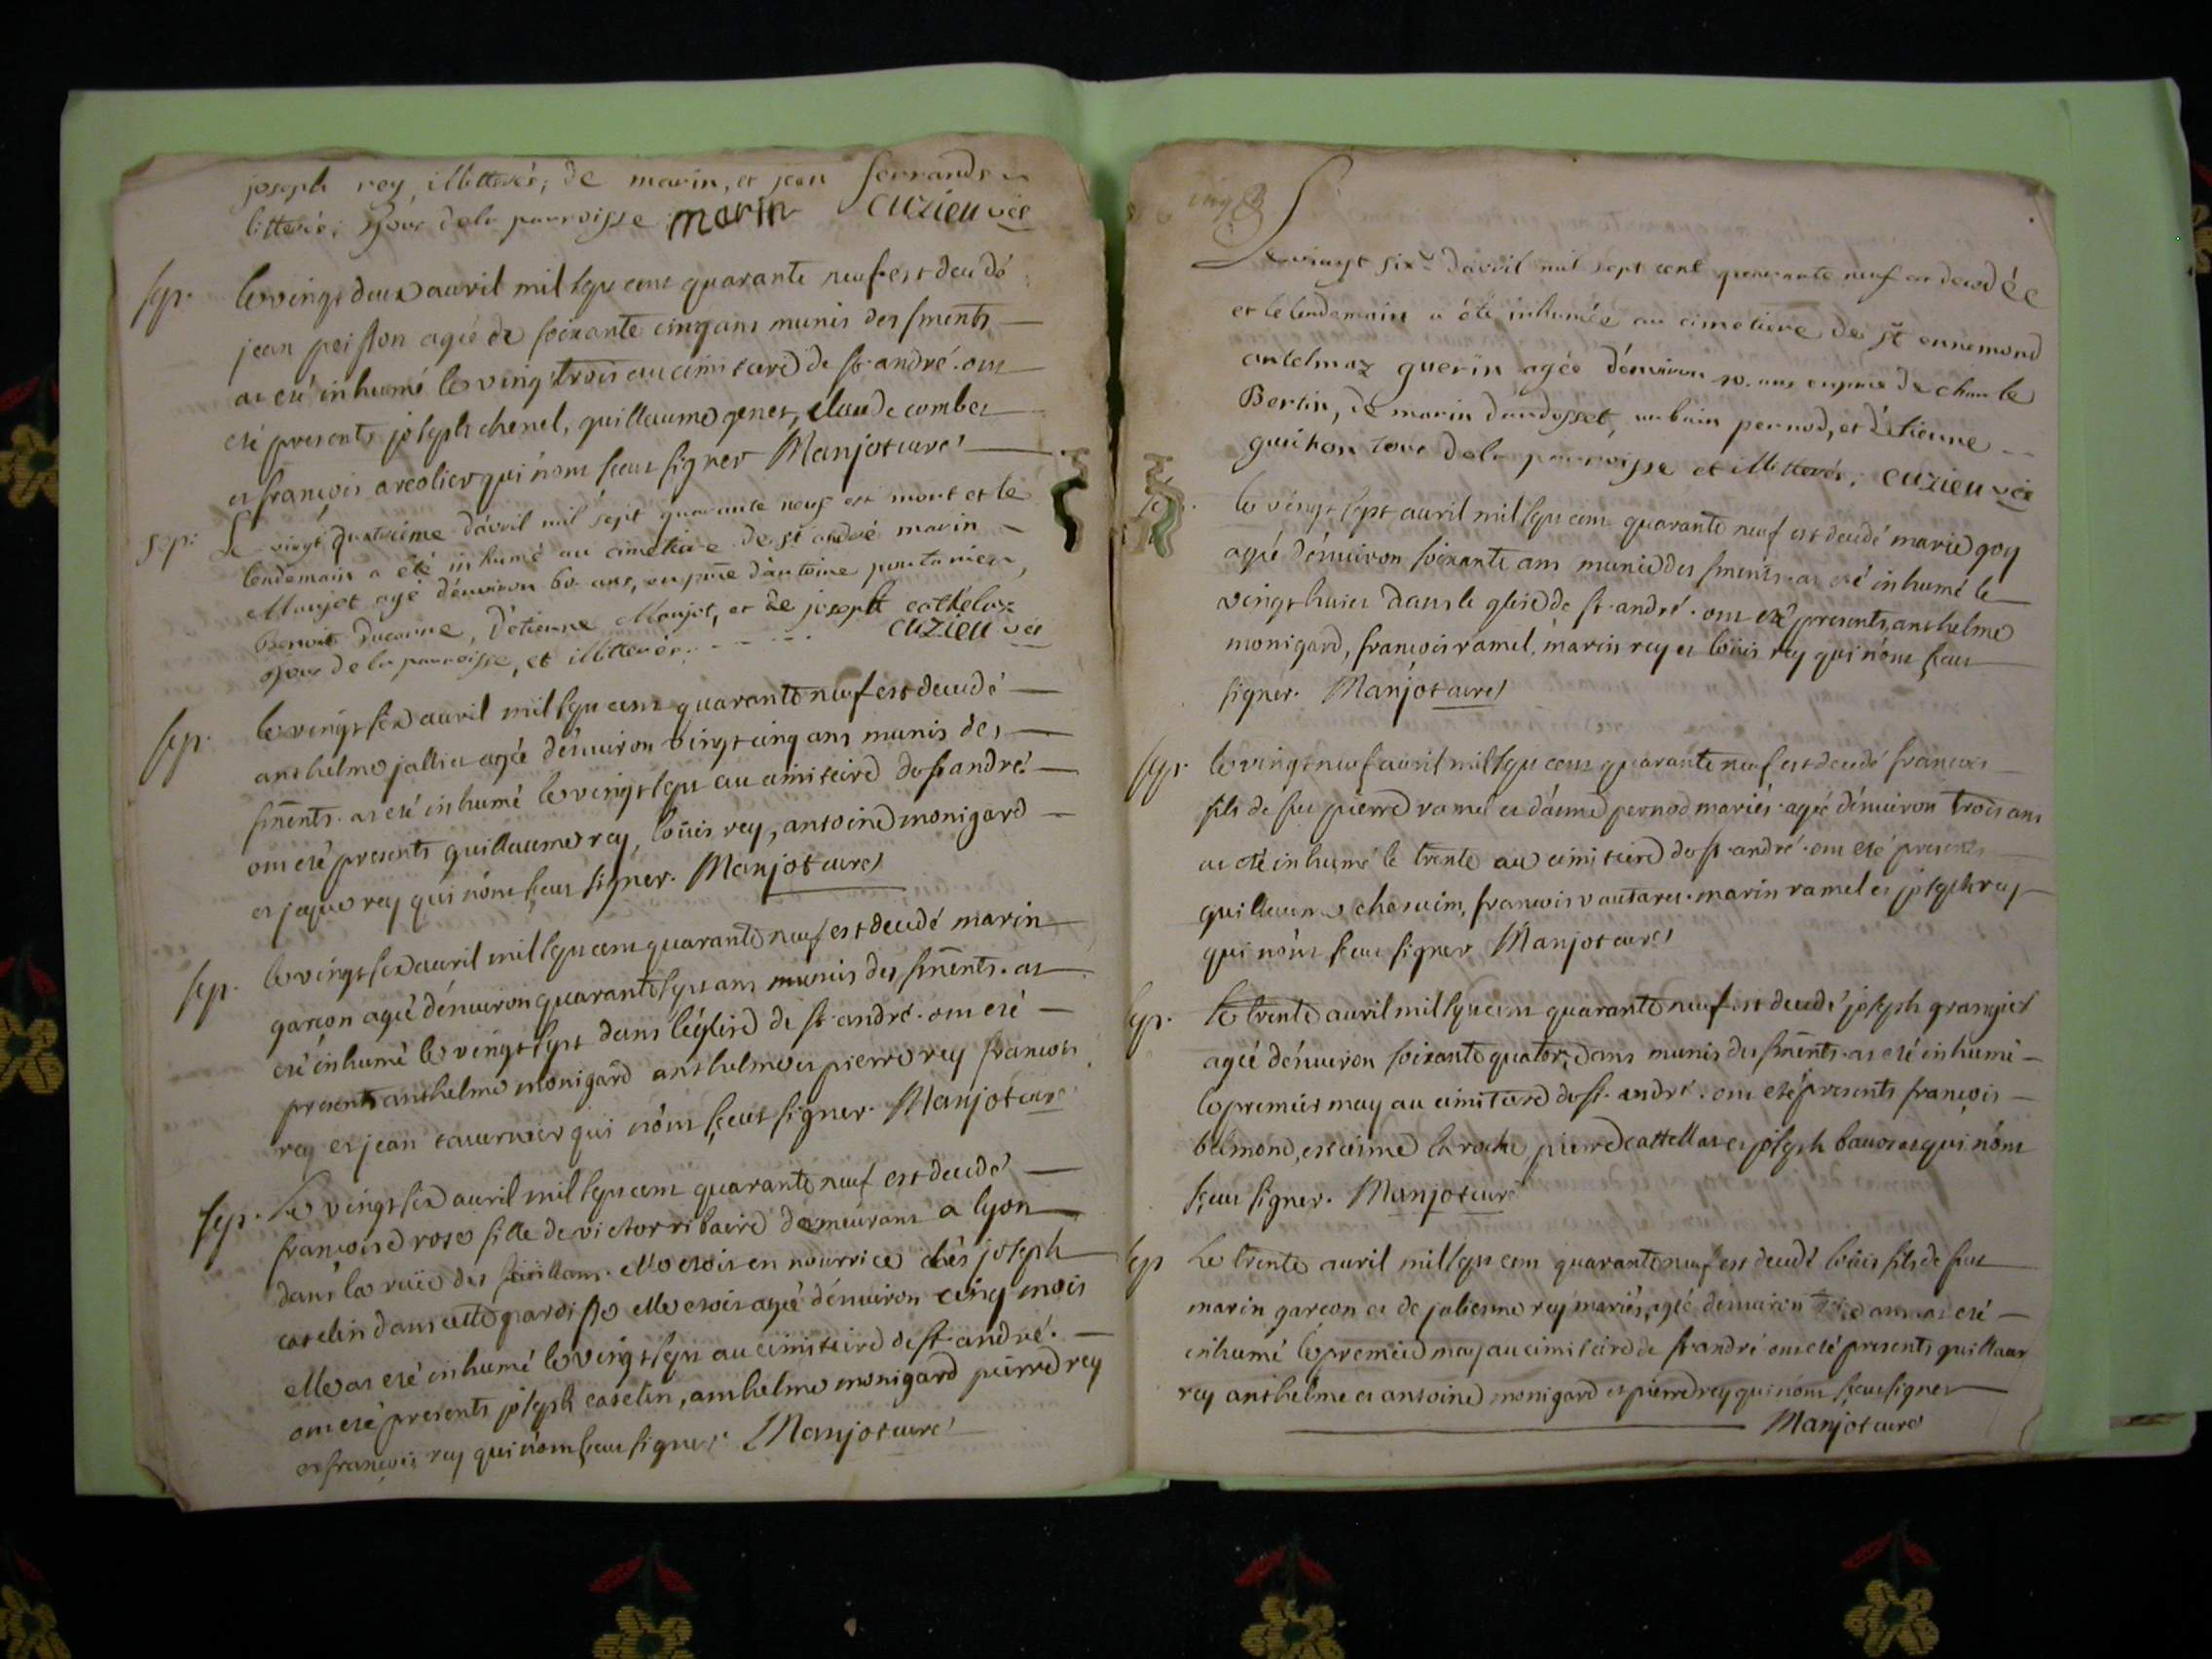 joseph rey, illitterés, de marin, et jean ferrand
litteré, tous de la parroisse marin Cuzieu vic
sep. le vingt deux auril mil sept cent quarante neuf est decedé
jean peisson agée de soixante cinq ans munis des sments
at eté inhumé le vingt trois au cimitaire de st andré. ont
eté presents joseph chenel, guillaume genet, claude combet
et françois areolier qui n'ont sceut signer Manjot curé
sep. Le vingt quatrième d'avril mil sept quarante neuf est mort et le
lendemain a été inhumé au cimetiere de st andré marin
Manjot agé d'environ 60 ans, en pnce d'antoine pontanier,
Benoit Ducarre, d'etienne Manjot, et de joseph cathelaz
tous de la parroisse, et illitterés. Cuzieu vic
sep. le vingt six auril mil sept cent quarante neuf est decedé
anthelme jallier agée d'enuiron vingt cinq ans munis des
sments. at eté inhumé le vingt sept au cimitaire de st andré.
ont eté presents guillaume rey, loüis rey, antoine monigard
et jaque rey qui n'ont sceut signer. Manjot curé
sep. le vingt six auril mil sept cent quarante neuf est decedé marin
garcon agée d'enuiron quarante sept ans munis des sments. at
eté inhumé le vingt sept dans l'église de st andré. ont eté
presents anthelme monigard anthelme et pierre rey francois
rey et jean tauernier qui n'ont sceut signer. Manjot curé
sep. Le vingt six auril mil sept cent quarante neuf est decedé
francoise rose fille de victor ribaire demeurant a lyon
dans la ruie des elle etoit en nourrice chés joseph
caselin dans cette paroisse elle etoit agée d'enuiron cinq mois
elle at eté inhumé le vingt sept au cimitaire de st andré.
ont eté presents joseph caselin, anthelme monigard pierre rey
et francois rey qui n'ont sceut signer. Manjot curé
Le vingt six d'avril mil sept cent quarante neuf est decedée
et le lendemain a été inhumée au cimetiere de st ennemond
antelmaz guerin agée d'environ ans en pnce de charle
Bertin, de marin dandosset, urbain pernod, et d'etienne
guichon tous de la parroisse et illitterés. Cuzieu vic
le vingt sept auril mil sept cent quarante neuf est decedé marie goy
agée d'enuiron soixante ans munie des sments. at eté inhumé le
vingt huict dans le glise de st andré. ont eté presents, anthelme
monigard, francois ramel, marin rey et loüis rey qui n'ont sceut
signer. Manjot curé
sep. le vingt neuf auril mil sept cent quarante neuf est decedé francois
fils de feu pierre ramel et d'aimé pernod mariés. agée d'enuiron trois ans
at eté inhumé le trente au cimitaire de st andré. ont eté presents
guillaume cheruim, francois vautaret. marin ramel et joseph rey
qui n'ont sceut signer Manjot curé
sep. Le trente auril mil sept cent quarante neuf est decedé joseph grangiet
agée d'enuiron soixante quatorze ans munis des sments. at eté inhumé
le premier may au cimitaire de st. andré. ont eté presents francois
belmond, estienne la roche, pierre cattellaz et joseph qui n'ont
sceut signer. Manjot curé
sep Le trente auril mil sept cent quarante neuf est decedé loüis fils de feu
marin garcon et de julienne rey mariés, agée d'enuiron ans at eté
inhumé le premier may au cimitaire de st andré ont eté presents guillaume
rey anthelme et antoine monigard et pierre rey qui n'ont sceut signer
Manjot curé